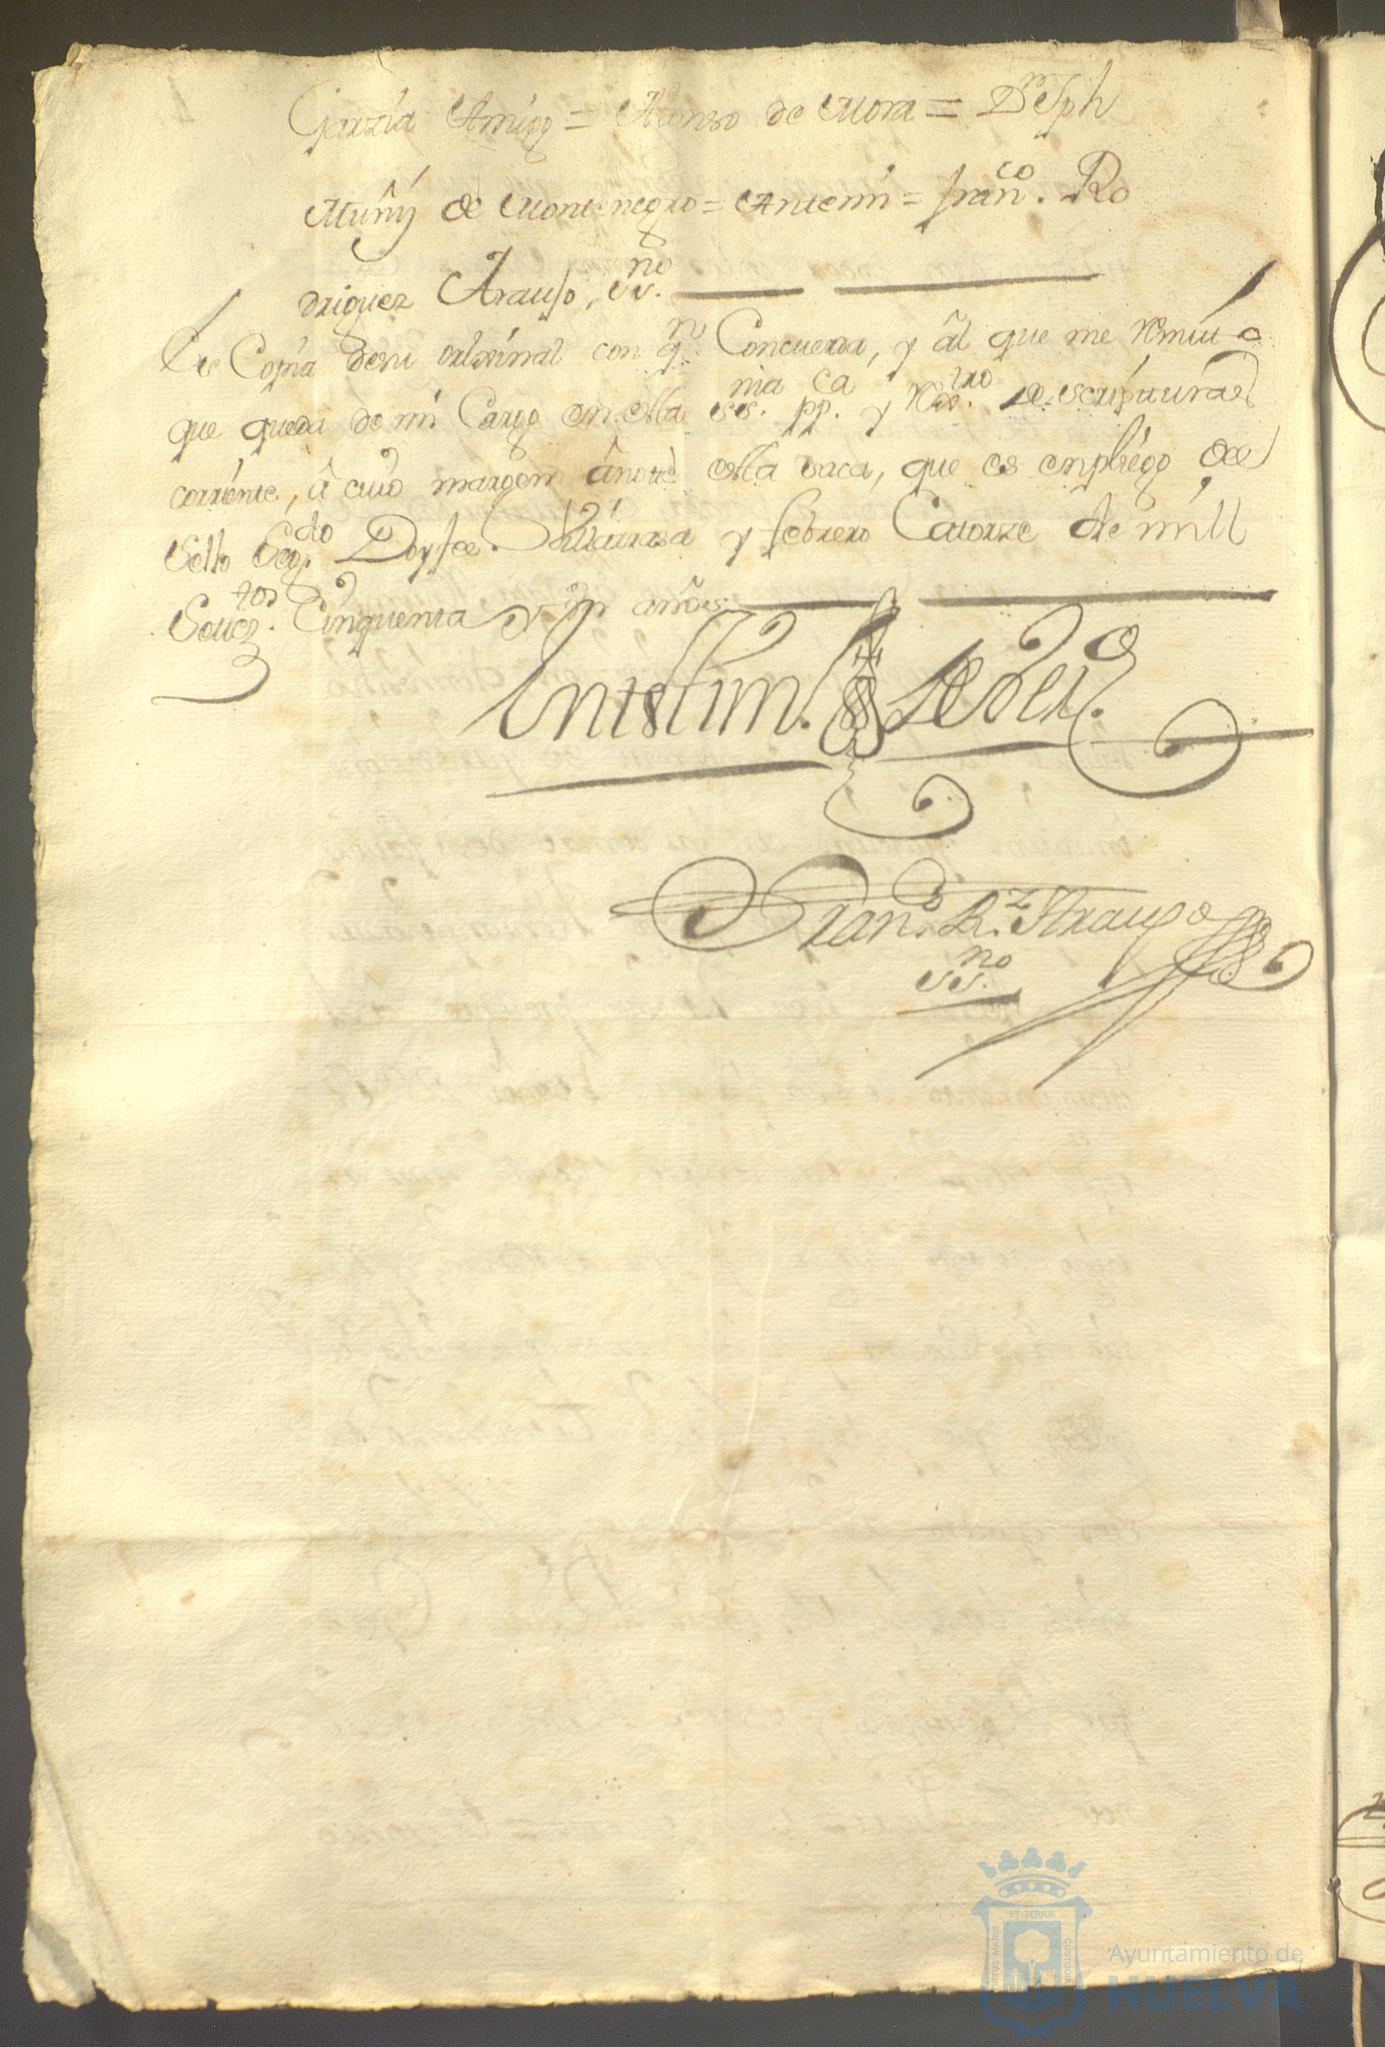 Garzia Amigo = Alonso de Mora = Dn Jph
Muñiz de Montenegro = Antemi = franco. Ro
driguez Araujo, ssno.
Es Copia desu orixinal con qn. Concuerda, y âl que me Remito
que queda de mi Cargo en esta ssnia. ppca. y Rextro. de escripturas
corriente, â cuio margen ânoté esta saca, que es en pliego del
Sello Segdo. Doy fee. Villarrasa y febrero Catorze de mill
Setectos. Cinquenta y Un años
En testim. de Verd.
Franco. Rz. Araujo
ssno.
Ayuntamiento de
HUELVA